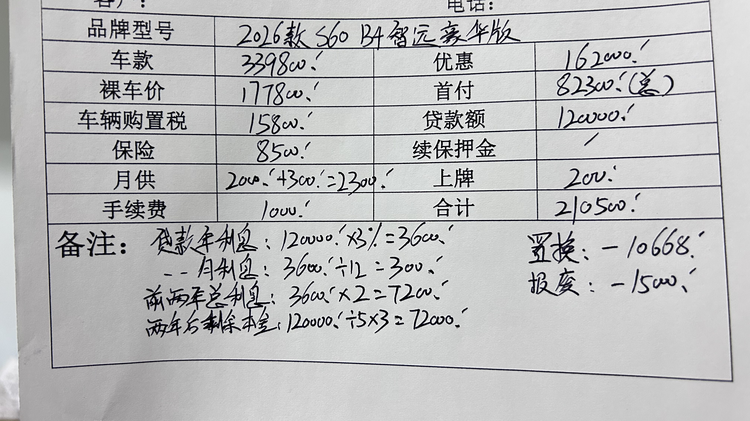 客户： 电话：
品牌型号 2026款 S60 B4 智远豪华版
车款 339800.' 优惠 162000.'
裸车价 177800.' 首付 82300.'(总)
车辆购置税 15800.' 贷款额 120000.'
保险 8500.' 续保押金 /
月供 2000.'+300.'=2300.' 上牌 200.'
手续费 1000.' 合计 210500.'
备注： 贷款年利息：120000.'×3%=3600.' 置换：-10668.'
-- 月利息：3600.'÷12=300.' 报废：-15000.'
前两年总利息：3600.'×2=7200.'
两年后剩余本金：120000.'÷5×3=72000.'